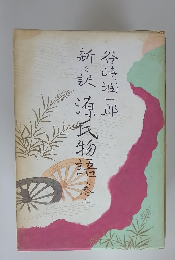 谷崎潤一郎
新々訳
源氏物語